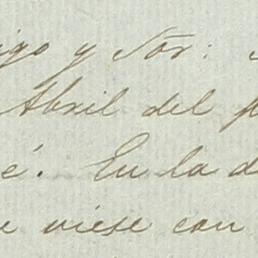 igo y Sõr:
Abril del p
é. En la d
e viese con